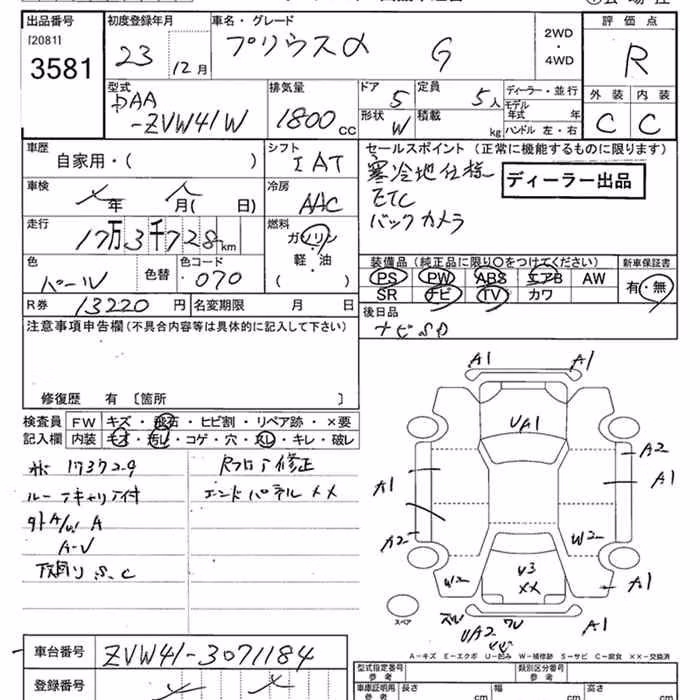 出品番号
[20811]
3581
初度登録年月
23 12月
車名・グレード
プリウスα G
2WD
・
4WD
評価点
R
外装 内装
C C
型式
DAA
-ZVW41W
排気量
1800 CC
ドア 5
定員 5人
形状 W
積載 kg
ディーラー・並行
モデル年式 年
ハンドル 左・右
車歴
自家用・( )
シフト
IAT
セールスポイント (正常に機能するものに限ります)
寒冷地仕様
ETC
バックカメラ
ディーラー出品
車検
年 月( 日)
冷房
AAC
走行
17万3千728km
燃料
ガソリン
・
軽・油
( )
色
パール
色替
色コード
・070
装備品 (純正品に限り○をつけてください)
PS PW ABS エアB AW
SR ナビ TV カワ
新車保証書
有・無
R券 13220円
名変期限 月 日
後日品
ナビSD
注意事項申告欄 (不具合内容等は具体的に記入して下さい)
修復歴 有 〔箇所 〕
検査員
記入欄
FW キズ・飛石・ヒビ割・リペア跡・×要
内装 キズ・汚レ・コゲ・穴・スレ・キレ・破レ
173729
Rフロア修正
ルーフキャリア付
エンドパネル××
外A/W A
A-V
下廻りS.C
A1 A1
UA1
A2
A1 A1
A2 W2
W2 U3
××
A1
スペア
UA2
A1
A-キズ E-エクボ U-凹み W-補修跡 S-サビ C-腐食 ××-交換済
車台番号 ZVW41-3071184
登録番号
型式指定番号
参考
類別区分番号
参考
車庫証明用
参考
長さ cm
幅 cm
高さ cm